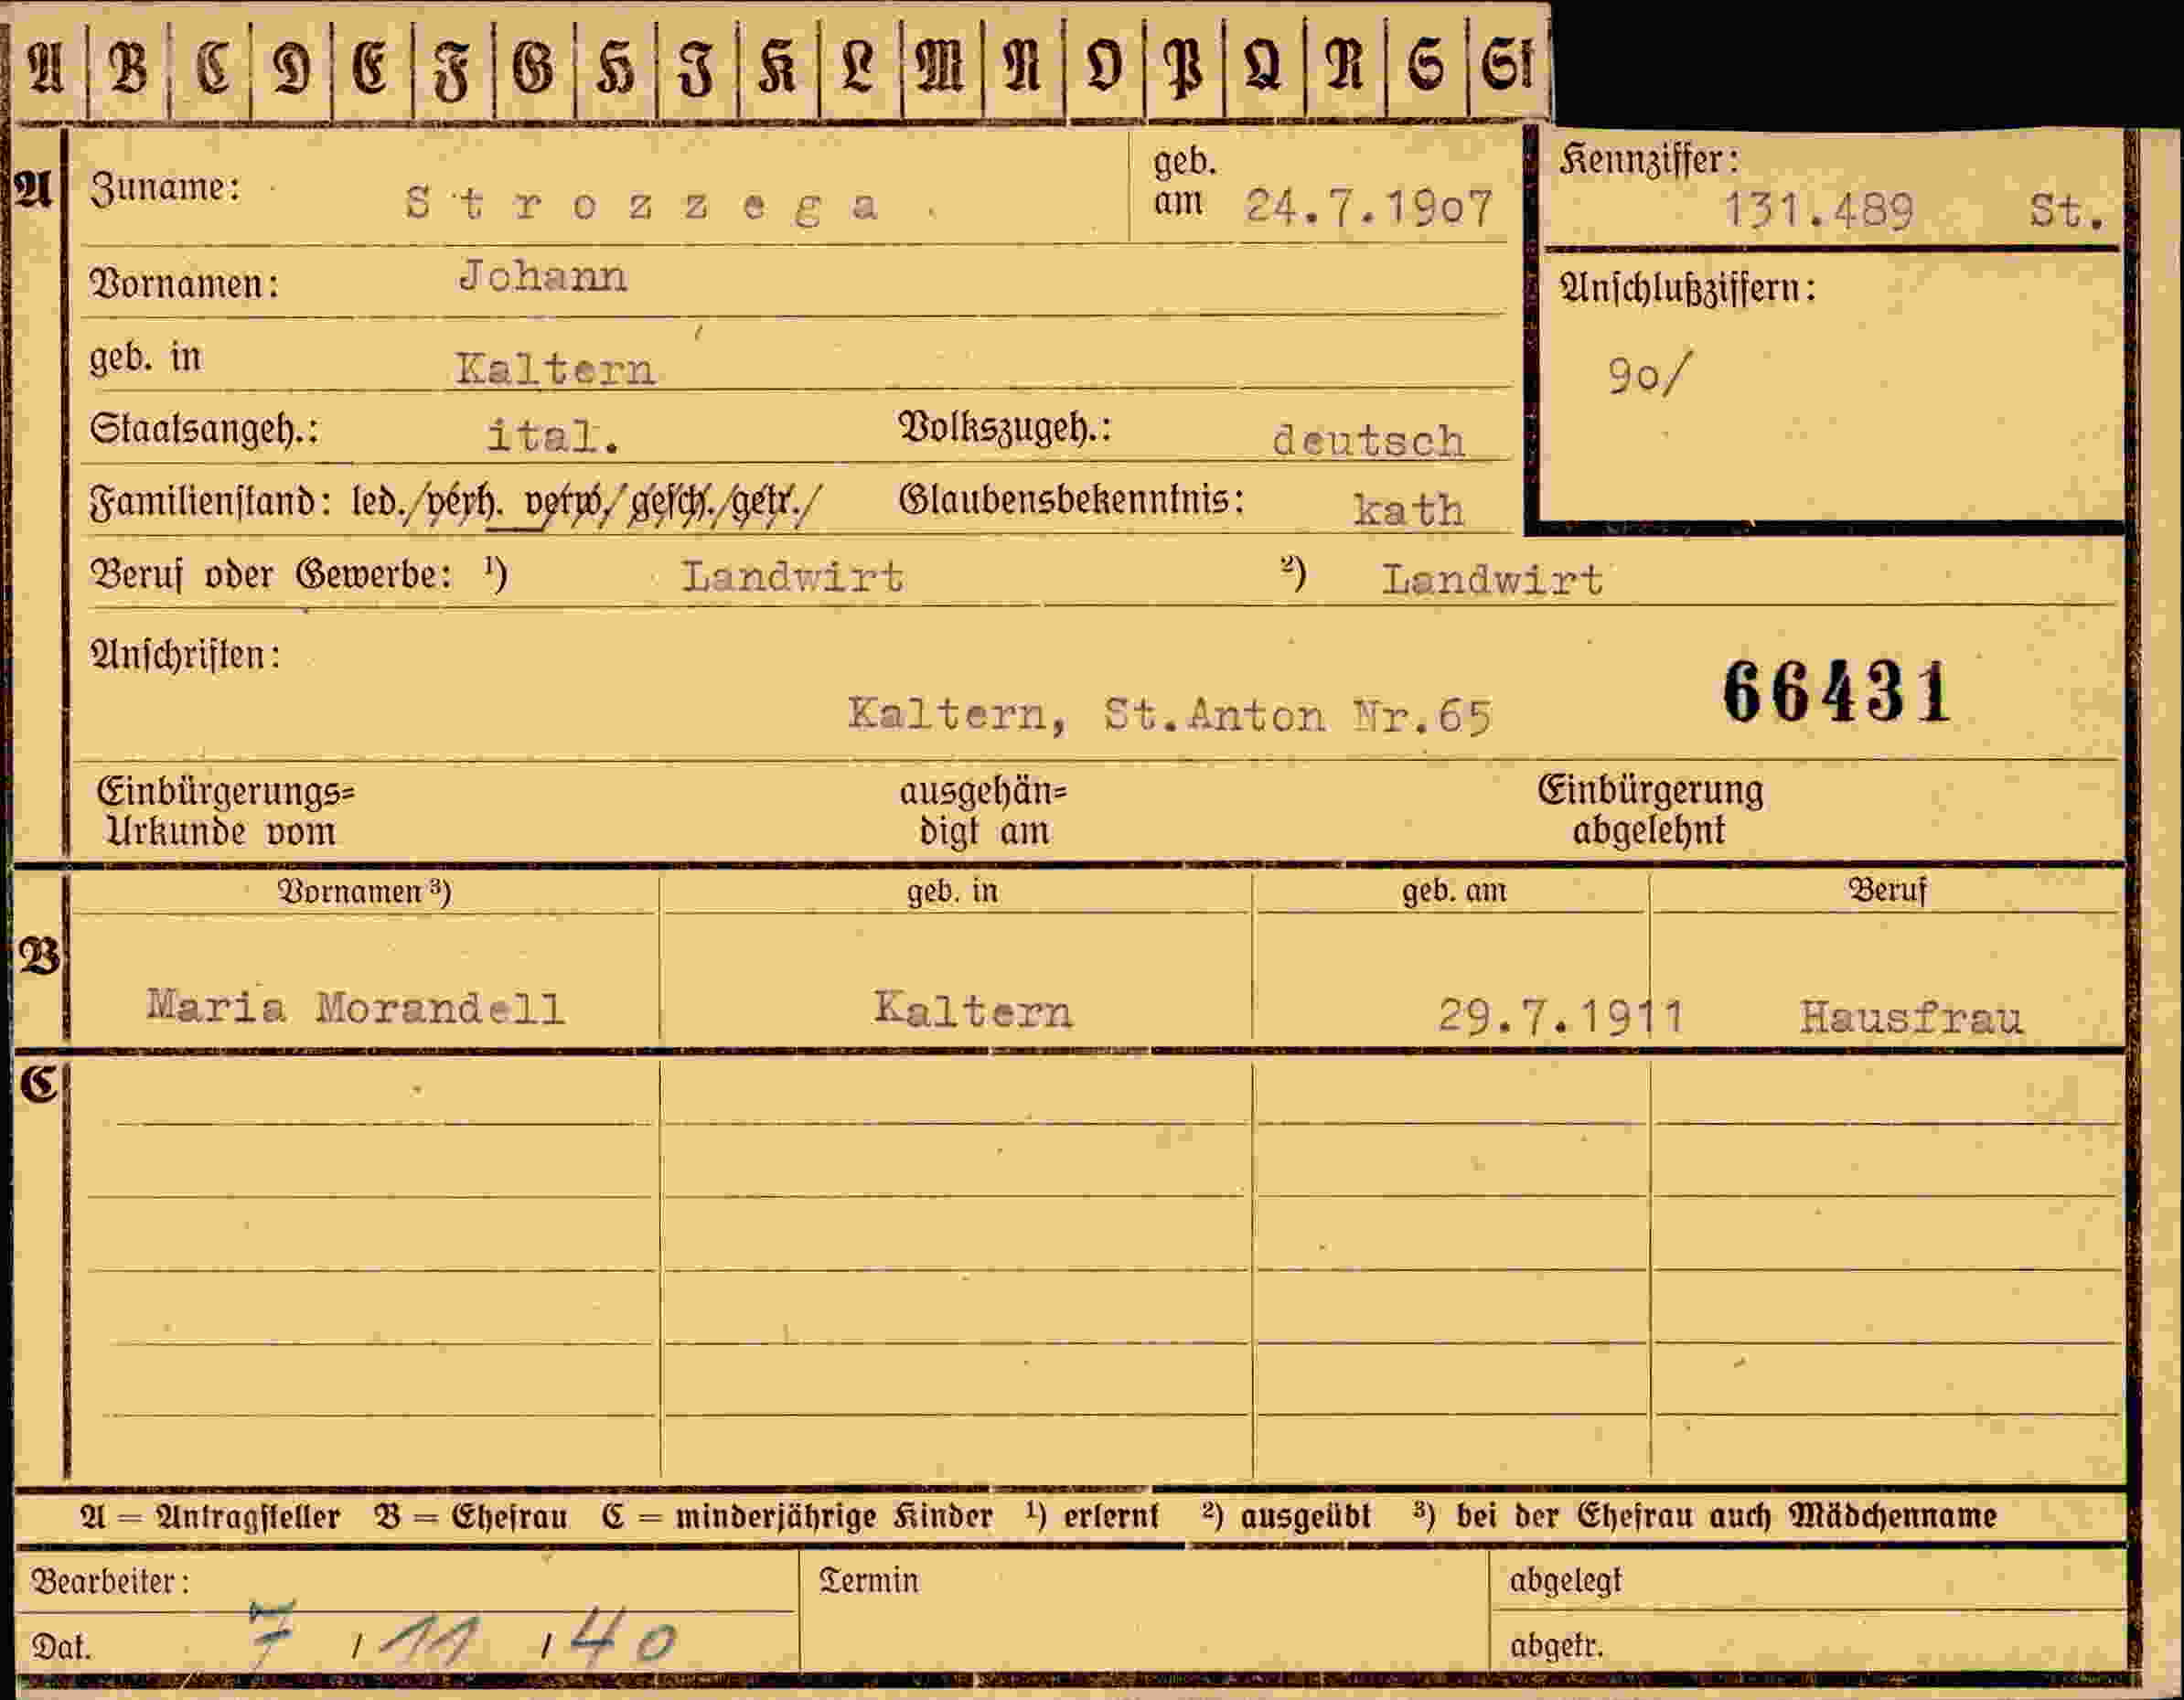 A B C D E F G H I K L M N O P Q R S St
A Zuname: Strozzega geb. am 24.7.1907 Kennziffer: 131.489 St.
Vornamen: Johann Anschlußziffern:
geb. in Kaltern 90/
Staatsangeh.: ital. Volkszugeh.: deutsch
Familienstand: led./verh. verw./gesch./getr./ Glaubensbekenntnis: kath
Beruf oder Gewerbe: ¹) Landwirt ²) Landwirt
Anschriften: 66431
Kaltern, St.Anton Nr.65
Einbürgerungs= ausgehän= Einbürgerung
Urkunde vom digt am abgelehnt
Vornamen ³) geb. in geb. am Beruf
B
Maria Morandell Kaltern 29.7.1911 Hausfrau
C
A = Antragsteller B = Ehefrau C = minderjährige Kinder ¹) erlernt ²) ausgeübt ³) bei der Ehefrau auch Mädchenname
Bearbeiter: Termin abgelegt
Dat. 7 / 11 / 40 abgetr.